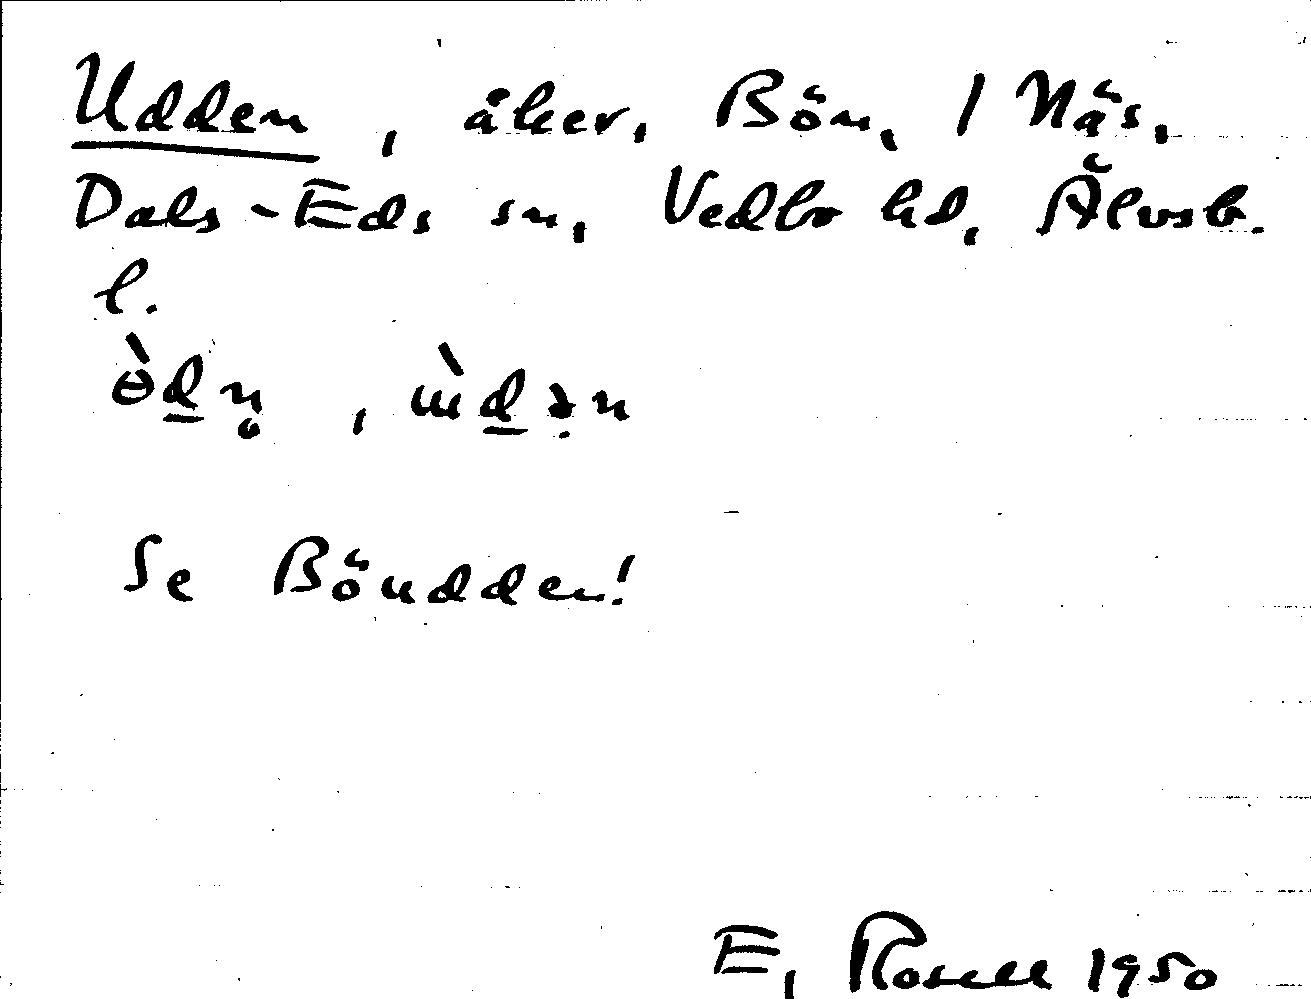 Udden, åker, Bön, 1 Näs,
Dals-Eds sn, Vedbo hd, Älvsb.
l.
Se Böudden!
E. Rosell 1950